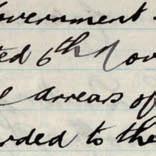 overnment
ted 6th Nov
arrears of
arded to the